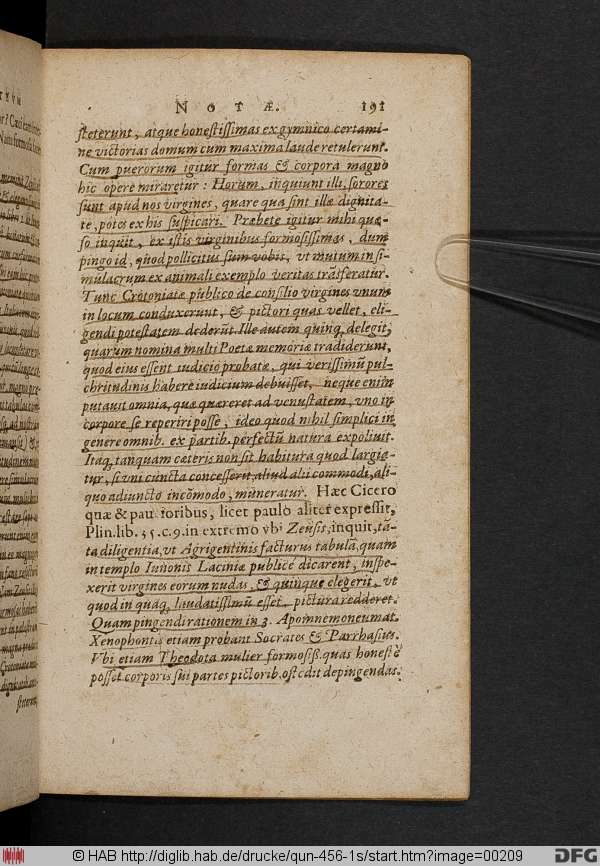 NOTÆ. 191
ſteterunt, atque honeſtiſſimas ex gymnico certami-
ne victorias domum cum maxima laude retulerunt.
Cum puerorum igitur formas & corpora magno
hic opere miraretur: Horum, inquiunt illi, ſorores
ſunt apud nos virgines, quare qua ſint illæ dignita-
te, potes ex his ſuſpicari. Præbete igitur mihi quæ-
ſo inquit, ex iſtis virginibus formoſiſſimas, dum
pingo id, quod pollicitus ſum vobis, vt mutum in ſi-
mulacrum ex animali exemplo veritas trãſferatur.
Tunc Crotoniatæ publico de conſilio virgines vnum
in locum conduxerunt, & pictori quas vellet, eli-
gendi poteſtatem dederũt. Ille autem quinq; delegit,
quarum nomina multi Poetæ memoriæ tradiderunt,
quod eius eſſent iudicio probatæ, qui veriſſimũ pul-
chritudinis habere iudicium debuiſſet, neque enim
putauit omnia, quæ quæreret ad venuſtatem, vno in
corpore ſe reperiri poſſe, ideo quod nihil ſimplici in
genere omnib. ex partib. perfectũ natura expoliuit.
Itaq; tanquam cæteris non ſit habitura quod largia-
tur, ſi vni cuncta conceſſerit aliud alii commodi, ali-
quo adiuncto incõmodo, muneratur. Hæc Cicero
quæ & pau. ioribus, licet paulo aliter expreſſit,
Plin. lib. 35. c. 9. in extremo vbi Zeuſis, inquit, tã-
ta diligentia, vt Agrigentinis facturus tabulã, quam
in templo Iunonis Laciniæ publicè dicarent, inſpe-
xerit virgines eorum nudas, & quinque elegerit, vt
quod in quaq; laudatiſſimũ eſſet, pictura redderet.
Quam pingendi rationem in 3. Apomnemoneumat.
Xenophontis etiam probant Socrates & Parrhaſius.
Vbi etiam Theodota mulier formoſiſſ. quas honeſtè
poſſet corporis ſui partes pictorib. oſtēdit depingendas.
© HAB http://diglib.hab.de/drucke/qun-456-1s/start.htm?image=00209
DFG